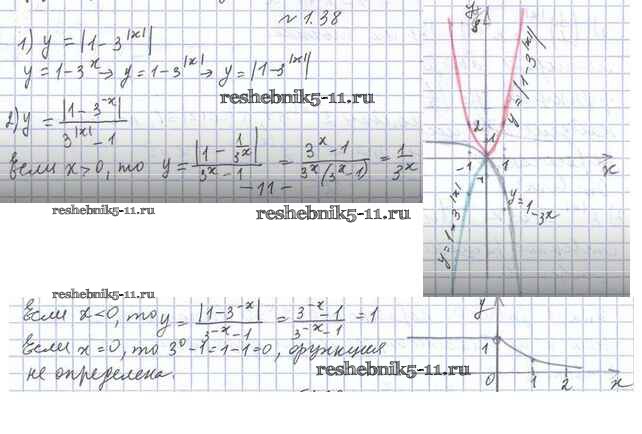 № 1.38
1) y = |1-3^|x||
y = 1-3^x → y = 1-3^|x| → y = |1-3^|x||
reshebnik5-11.ru
2) y = |1-3^-x| / (3^|x| - 1)
Если x>0, то y = |1 - 1/3^x| / (3^x - 1) = (3^x - 1) / (3^x(3^x - 1)) = 1/3^x
- 11 -
reshebnik5-11.ru
reshebnik5-11.ru
y
8
y = |1-3^|x||
2
1
-1
1
x
y = 1-3^|x|
y = 1-3^x
reshebnik5-11.ru
Если x<0, то y = |1-3^-x| / (3^-x - 1) = (3^-x - 1) / (3^-x - 1) = 1
Если x=0, то 3^0 - 1 = 1 - 1 = 0, функция
не определена.
reshebnik5-11.ru
y
1
0
1
2
x